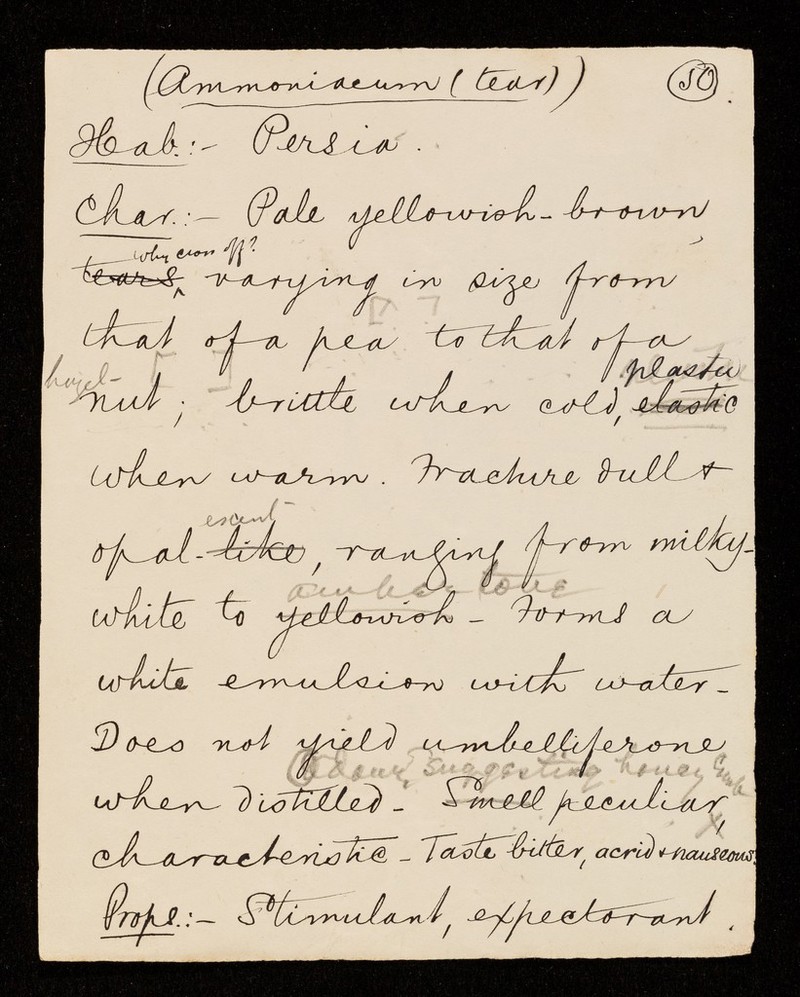 (Ammoniacum (tear)) 50.
Hab.:- Persia.
Char.:- Pale yellowish-brown,
why cross off?
tears, varying in size from
that of a pea to that of a
plastic
hazel-nut; brittle when cold, elastic
when warm. Fracture dull &
escent
opal-like, ranging from milky-
amber tone
white to yellowish - Forms a
white emulsion with water -
Does not yield umbelliferone
Odour, suggesting honey
when distilled - Smell peculiar,
characteristic - Taste bitter, acrid & nauseous.
Props.:- Stimulant, expectorant.